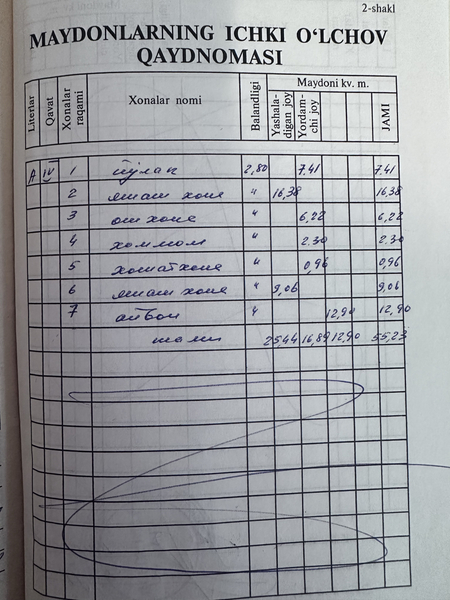 2-shakl
MAYDONLARNING ICHKI O‘LCHOV
QAYDNOMASI
Literlar Qavat Xonalar raqami Xonalar nomi Balandligi Maydoni kv. m. Yashala-digan joy Yordam-chi joy JAMI
A IV 1 йулак 2,80 7.41 7.41
2 яшаш хона " 16,38 16,38
3 ошхона " 6,22 6,22
4 хаммом " 2.30 2.30
5 хожатхона " 0,96 0,96
6 яшаш хона " 9,06 9,06
7 айвон " 12,90 12,90
жами 25,44 16,89 12,90 55,23